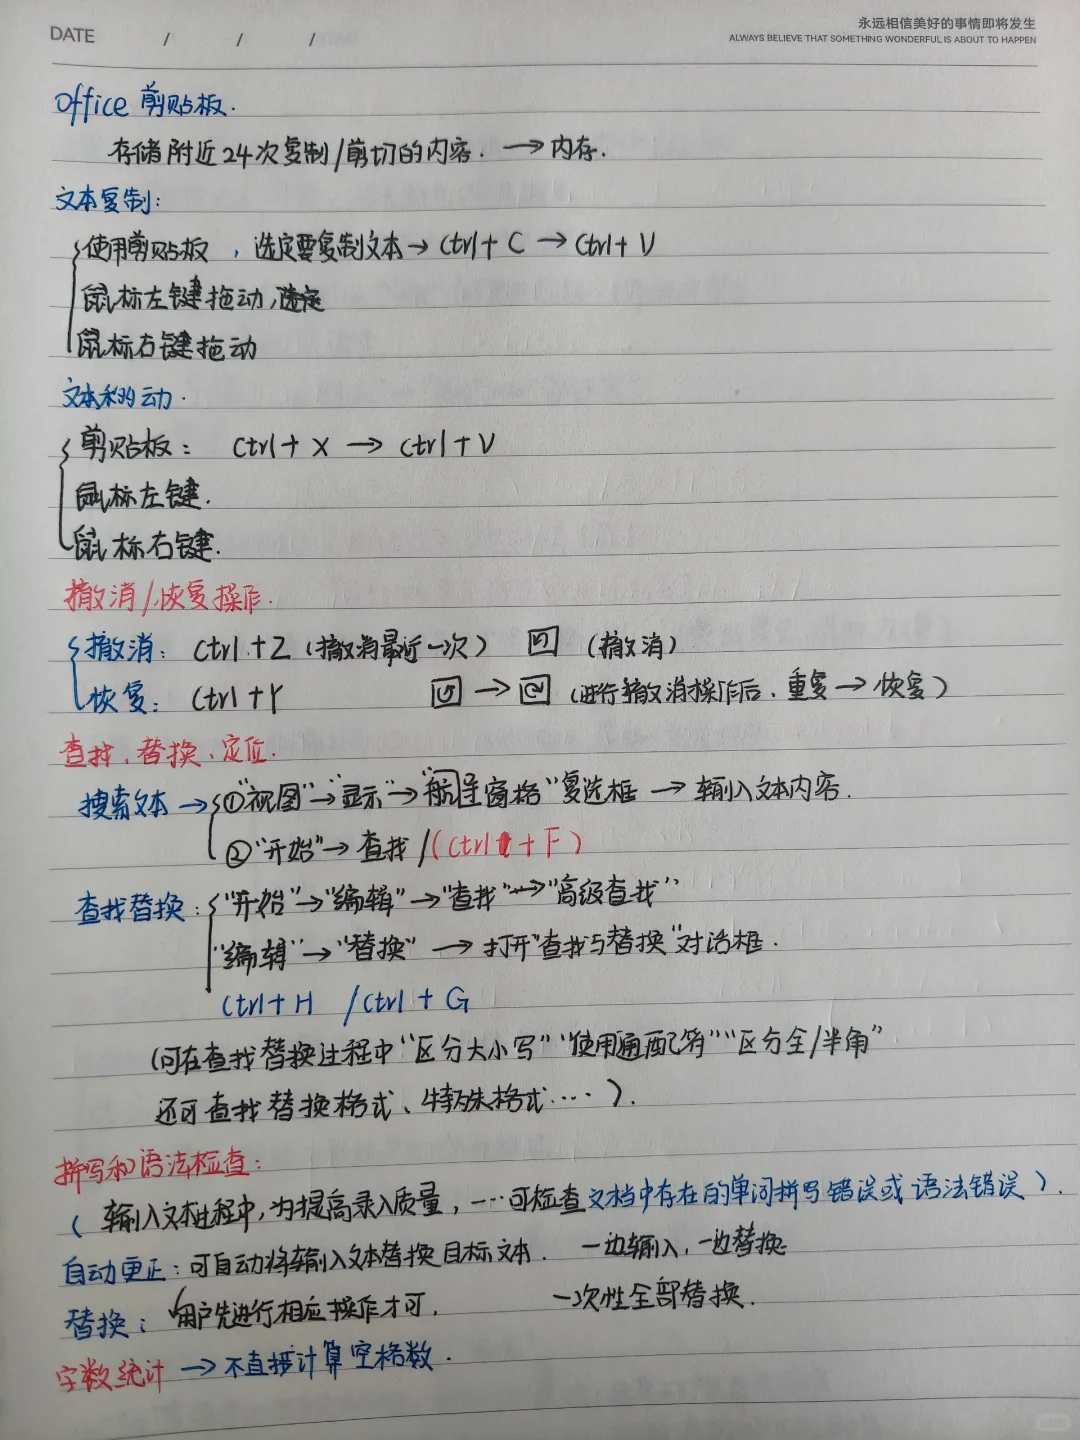 DATE / / /
永远相信美好的事情即将发生
ALWAYS BELIEVE THAT SOMETHING WONDERFUL IS ABOUT TO HAPPEN
Office 剪贴板.
存储附近24次复制/剪切的内容. → 内存.
文本复制:
使用剪贴板, 选定要复制文本→ Ctrl+C → Ctrl+V
鼠标左键拖动,
鼠标右键拖动
文本移动.
剪贴板: Ctrl+X → Ctrl+V
鼠标左键.
鼠标右键.
撤消/恢复操作.
撤消: Ctrl+Z (撤消最近一次) (撤消)
恢复: Ctrl+Y → (进行撤消操作后, 重复→恢复)
查找、替换、定位.
搜索文本→ ①"视图"→"显示"→"航导窗格"复选框 → 输入文本内容.
②"开始"→ 查找 /(Ctrl+F)
查找替换: "开始"→"编辑"→"查找"→"高级查找"
"编辑"→"替换" → 打开"查找与替换"对话框.
Ctrl+H /Ctrl+G
(可在查找替换过程中"区分大小写""使用通配符""区分全/半角"
还可查找替换格式、特殊格式…).
拼写和语法检查:
(输入文本过程中,为提高录入质量, …可检查文档中存在的单词拼写错误或语法错误).
自动更正: 可自动将输入文本替换目标文本. 一边输入,一边替换
替换: 用户先进行相应操作才可. 一次性全部替换.
字数统计 → 不直接计算空格数.